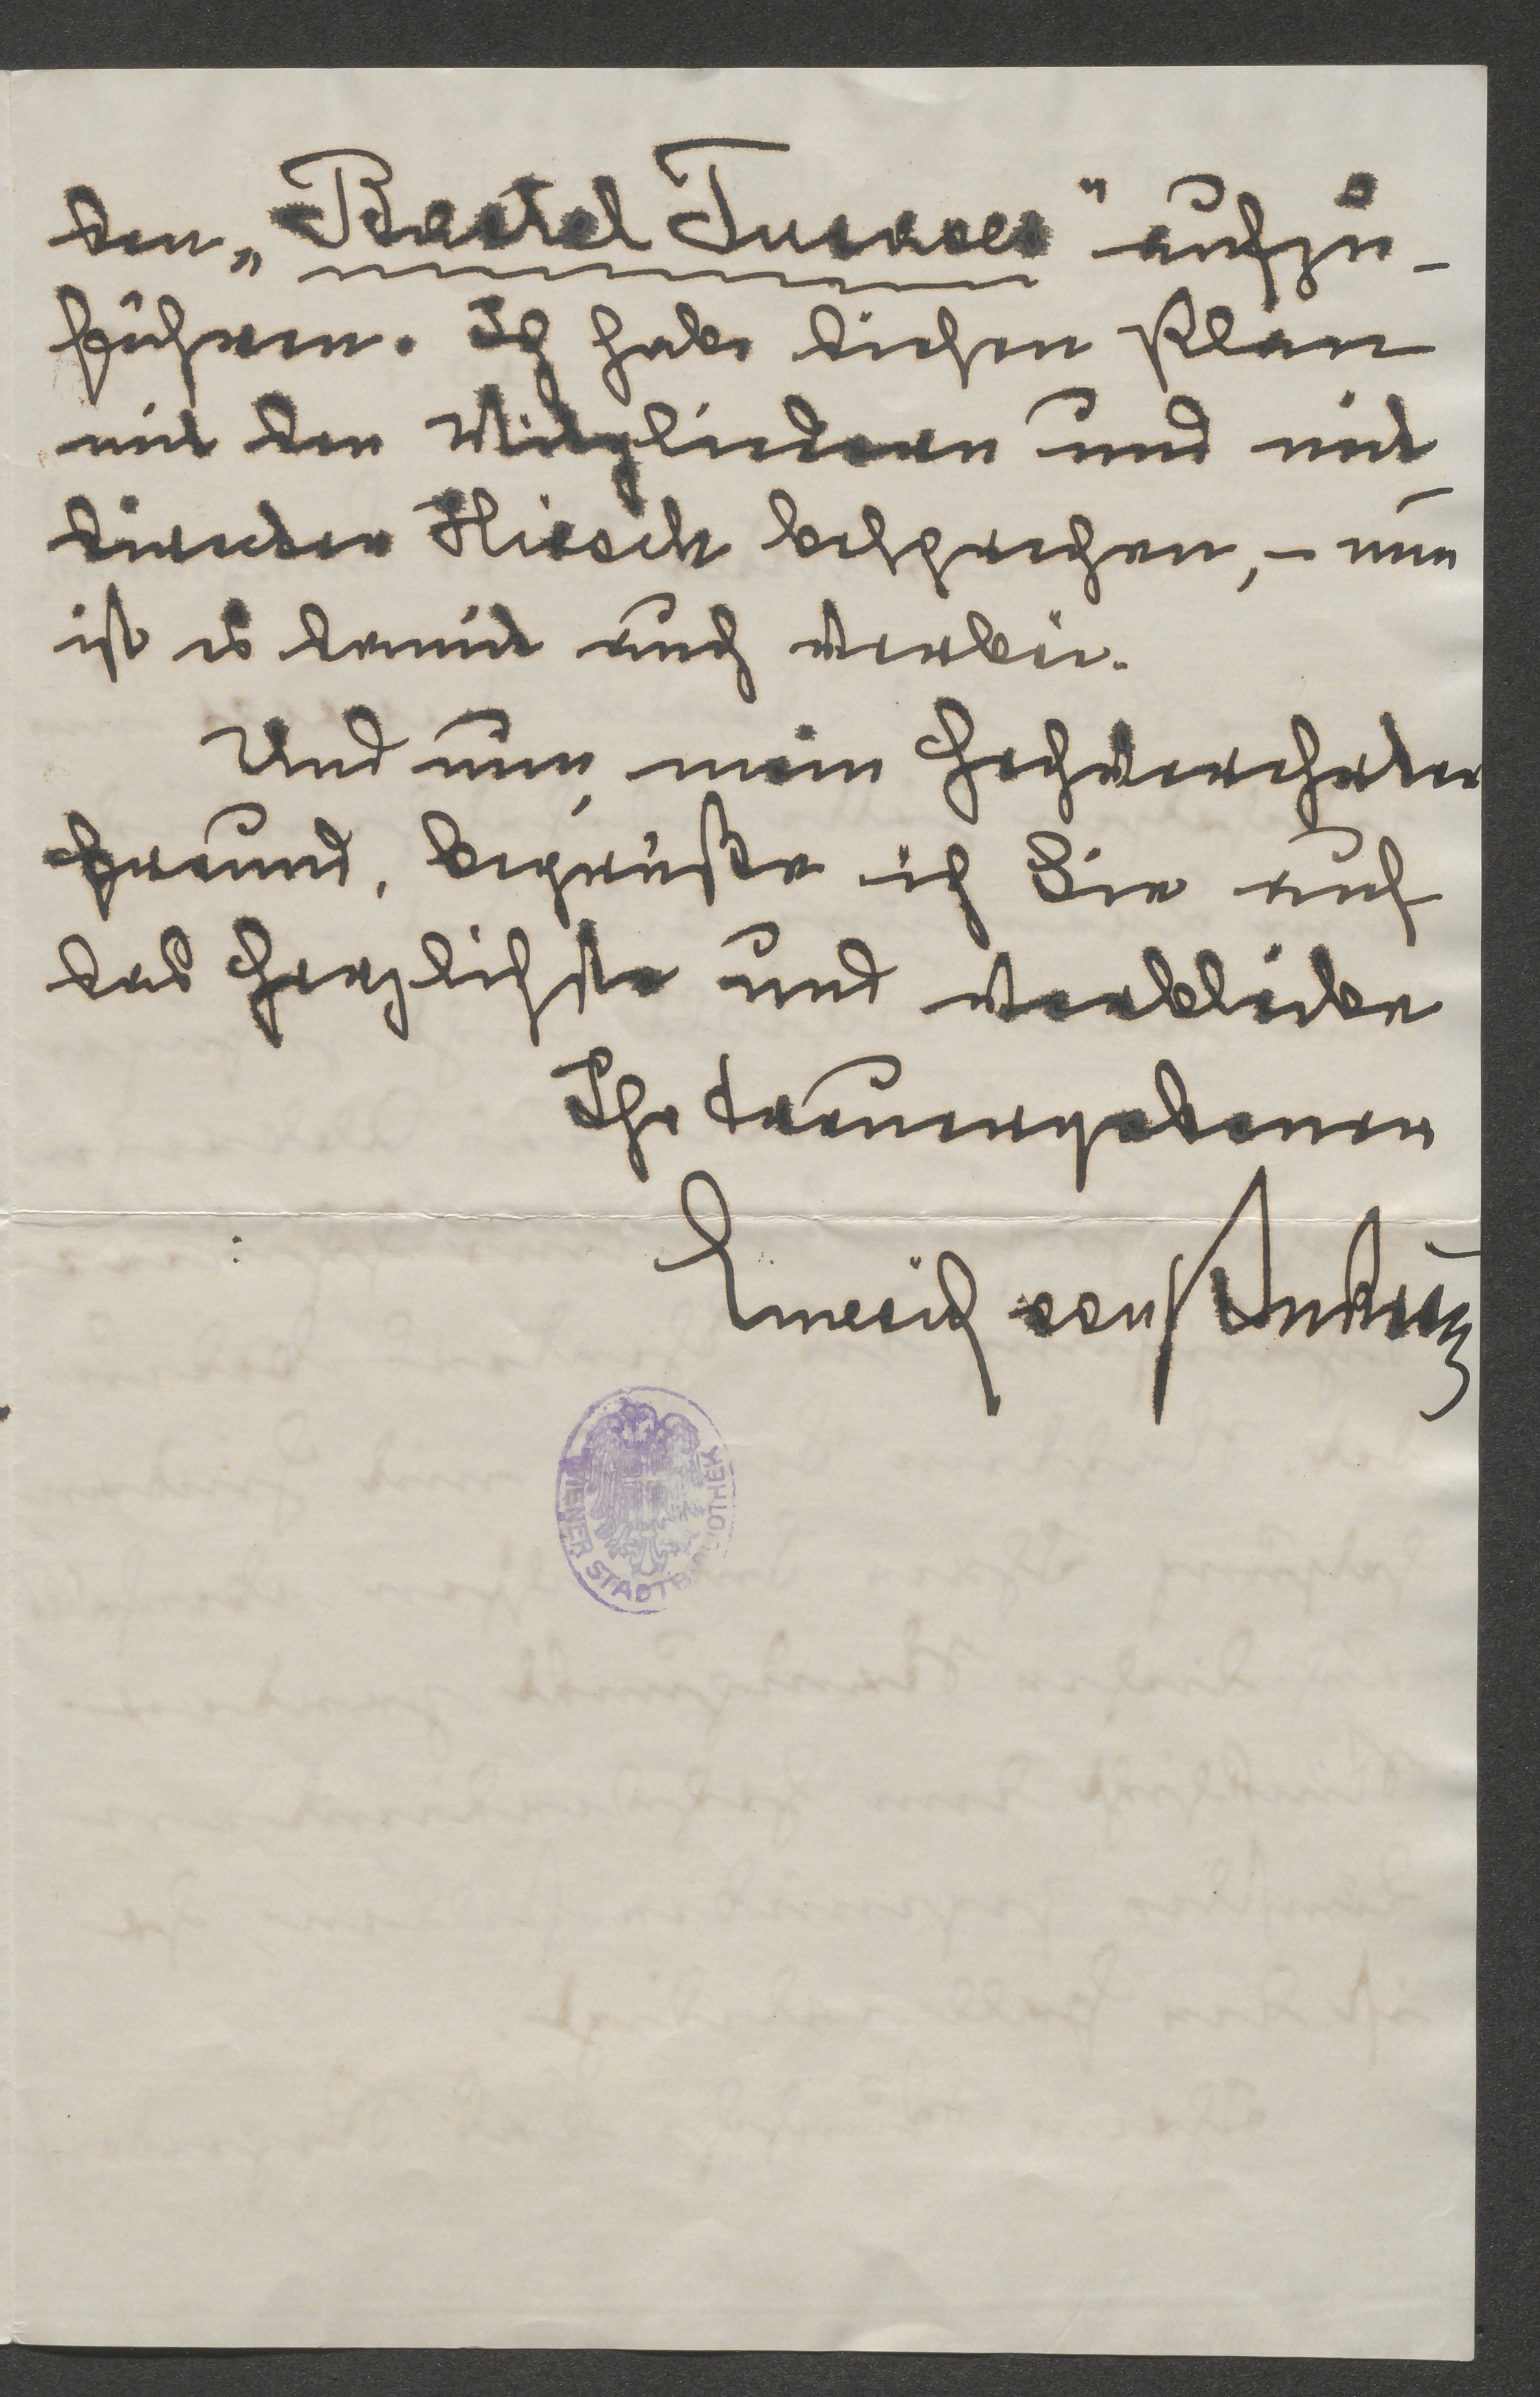 den „Bartel Turaser" aufzu-
führen. Ich habe diesen Plan
mit den Mitgliedern und mit
Direktor Hirsch besprochen, – nun
ist es damit auch vorbei.
Und nun, mein hochverehrter
Freund, begrüße ich Sie auf
das herzlichste und verbleibe
Ihr treuergebener
Emerich von Bukovics
WIENER STADTBIBLIOTHEK